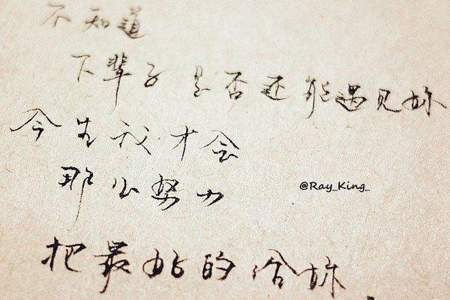 不知道
下辈子 是否还能遇见妳
今生我才会
那么努力
@Ray_King_
把最好的给妳